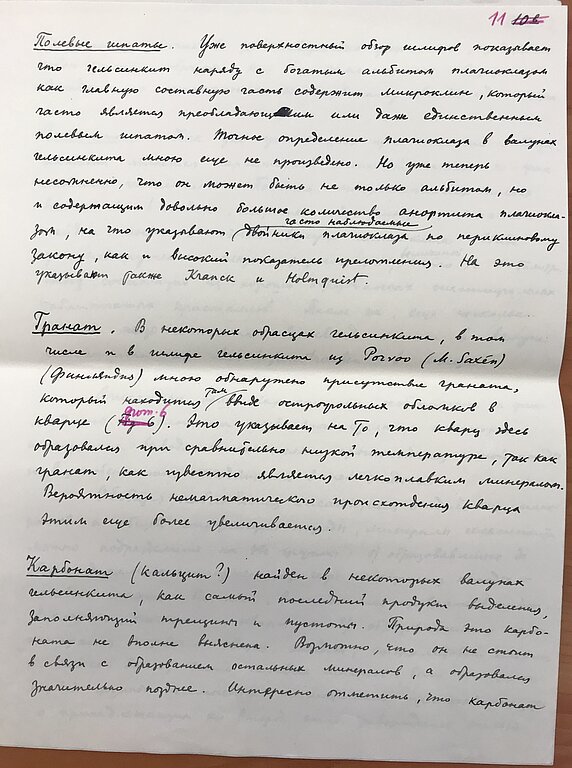 11 10а
Полевые шпаты. Уже поверхностный обзор шлифов показывает
что гельсинкит наряду с богатым альбитом плагиоклазом
как главную составную часть содержит микроклин, который
часто является преобладающим или даже единственным
полевым шпатом. Точное определение плагиоклаза в валунах
гельсинкита мною еще не произведено. Но уже теперь
несомненно, что он может быть не только альбитом, но
и содержащим довольно большое количество анортита плагиокла-
часто наблюдаемые
зом, на что указывают двойники плагиоклаза по периклиновому
закону, как и высокий показатель преломления. На это
указывают также Kranck и Holmquist.
Гранат. В некоторых образцах гельсинкита, в том
числе и в шлифе гельсинкита из Porvoo (M. Saxén)
(Финляндия) мною обнаружено присутствие граната,
который находится там ввиде остроугольных обломков в
кварце (фот. 6). Это указывает на то, что кварц здесь
образовался при сравнительно низкой температуре, так как
гранат, как известно является легкоплавким минералом.
Вероятность немагматического происхождения кварца
этим еще более увеличивается.
Карбонат (кальцит?) найден в некоторых валунах
гельсинкита, как самый последний продукт выделения,
заполняющий трещины и пустоты. Природа это карбо-
ната не вполне выяснена. Возможно, что он не стоит
в связи с образованием остальных минералов, а образовался
значительно позднее. Интересно отметить, что карбонат